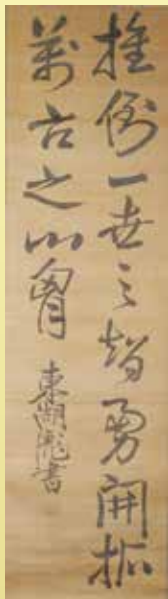 推倒一世之智勇開拓
萬古之心胷 東湖彪書